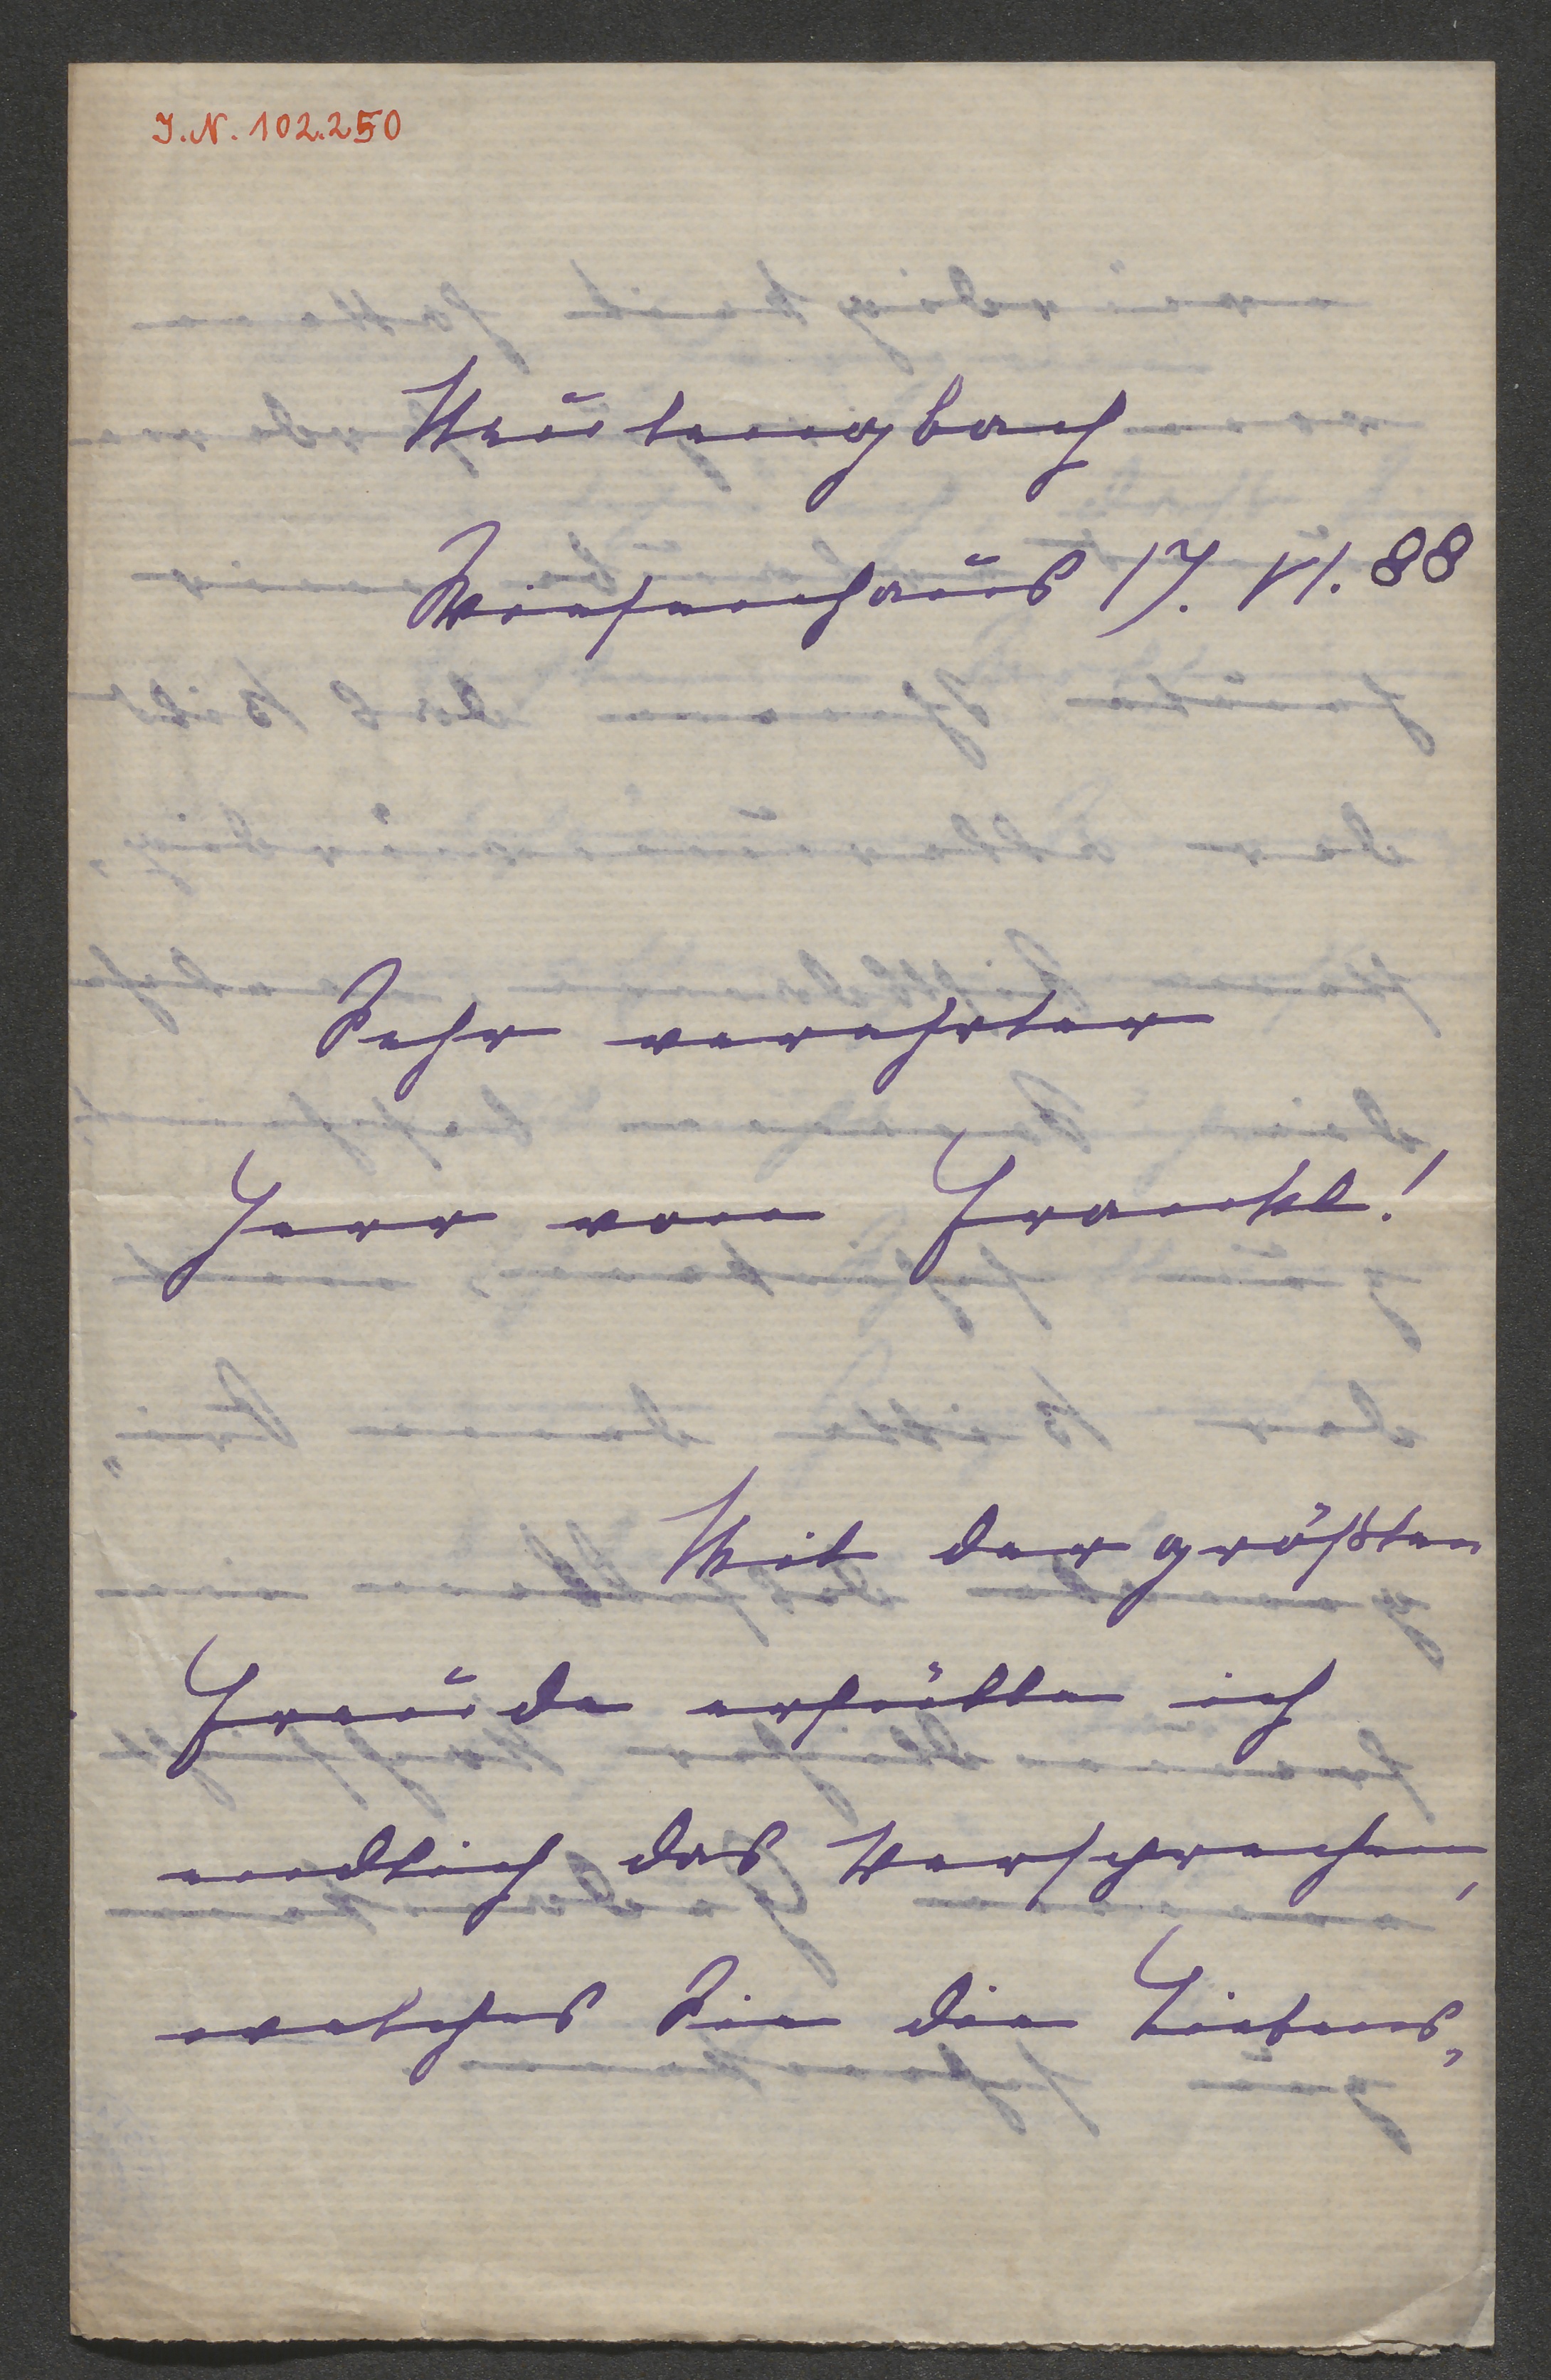 J.N. 102.250
Neulengbach
Wiesenhaus 17. VI. 88
Sehr verehrter
Herr von Frankl!
Mit der größten
Freude erfülle ich
endlich das Versprechen,
welches Sie die Liebens„